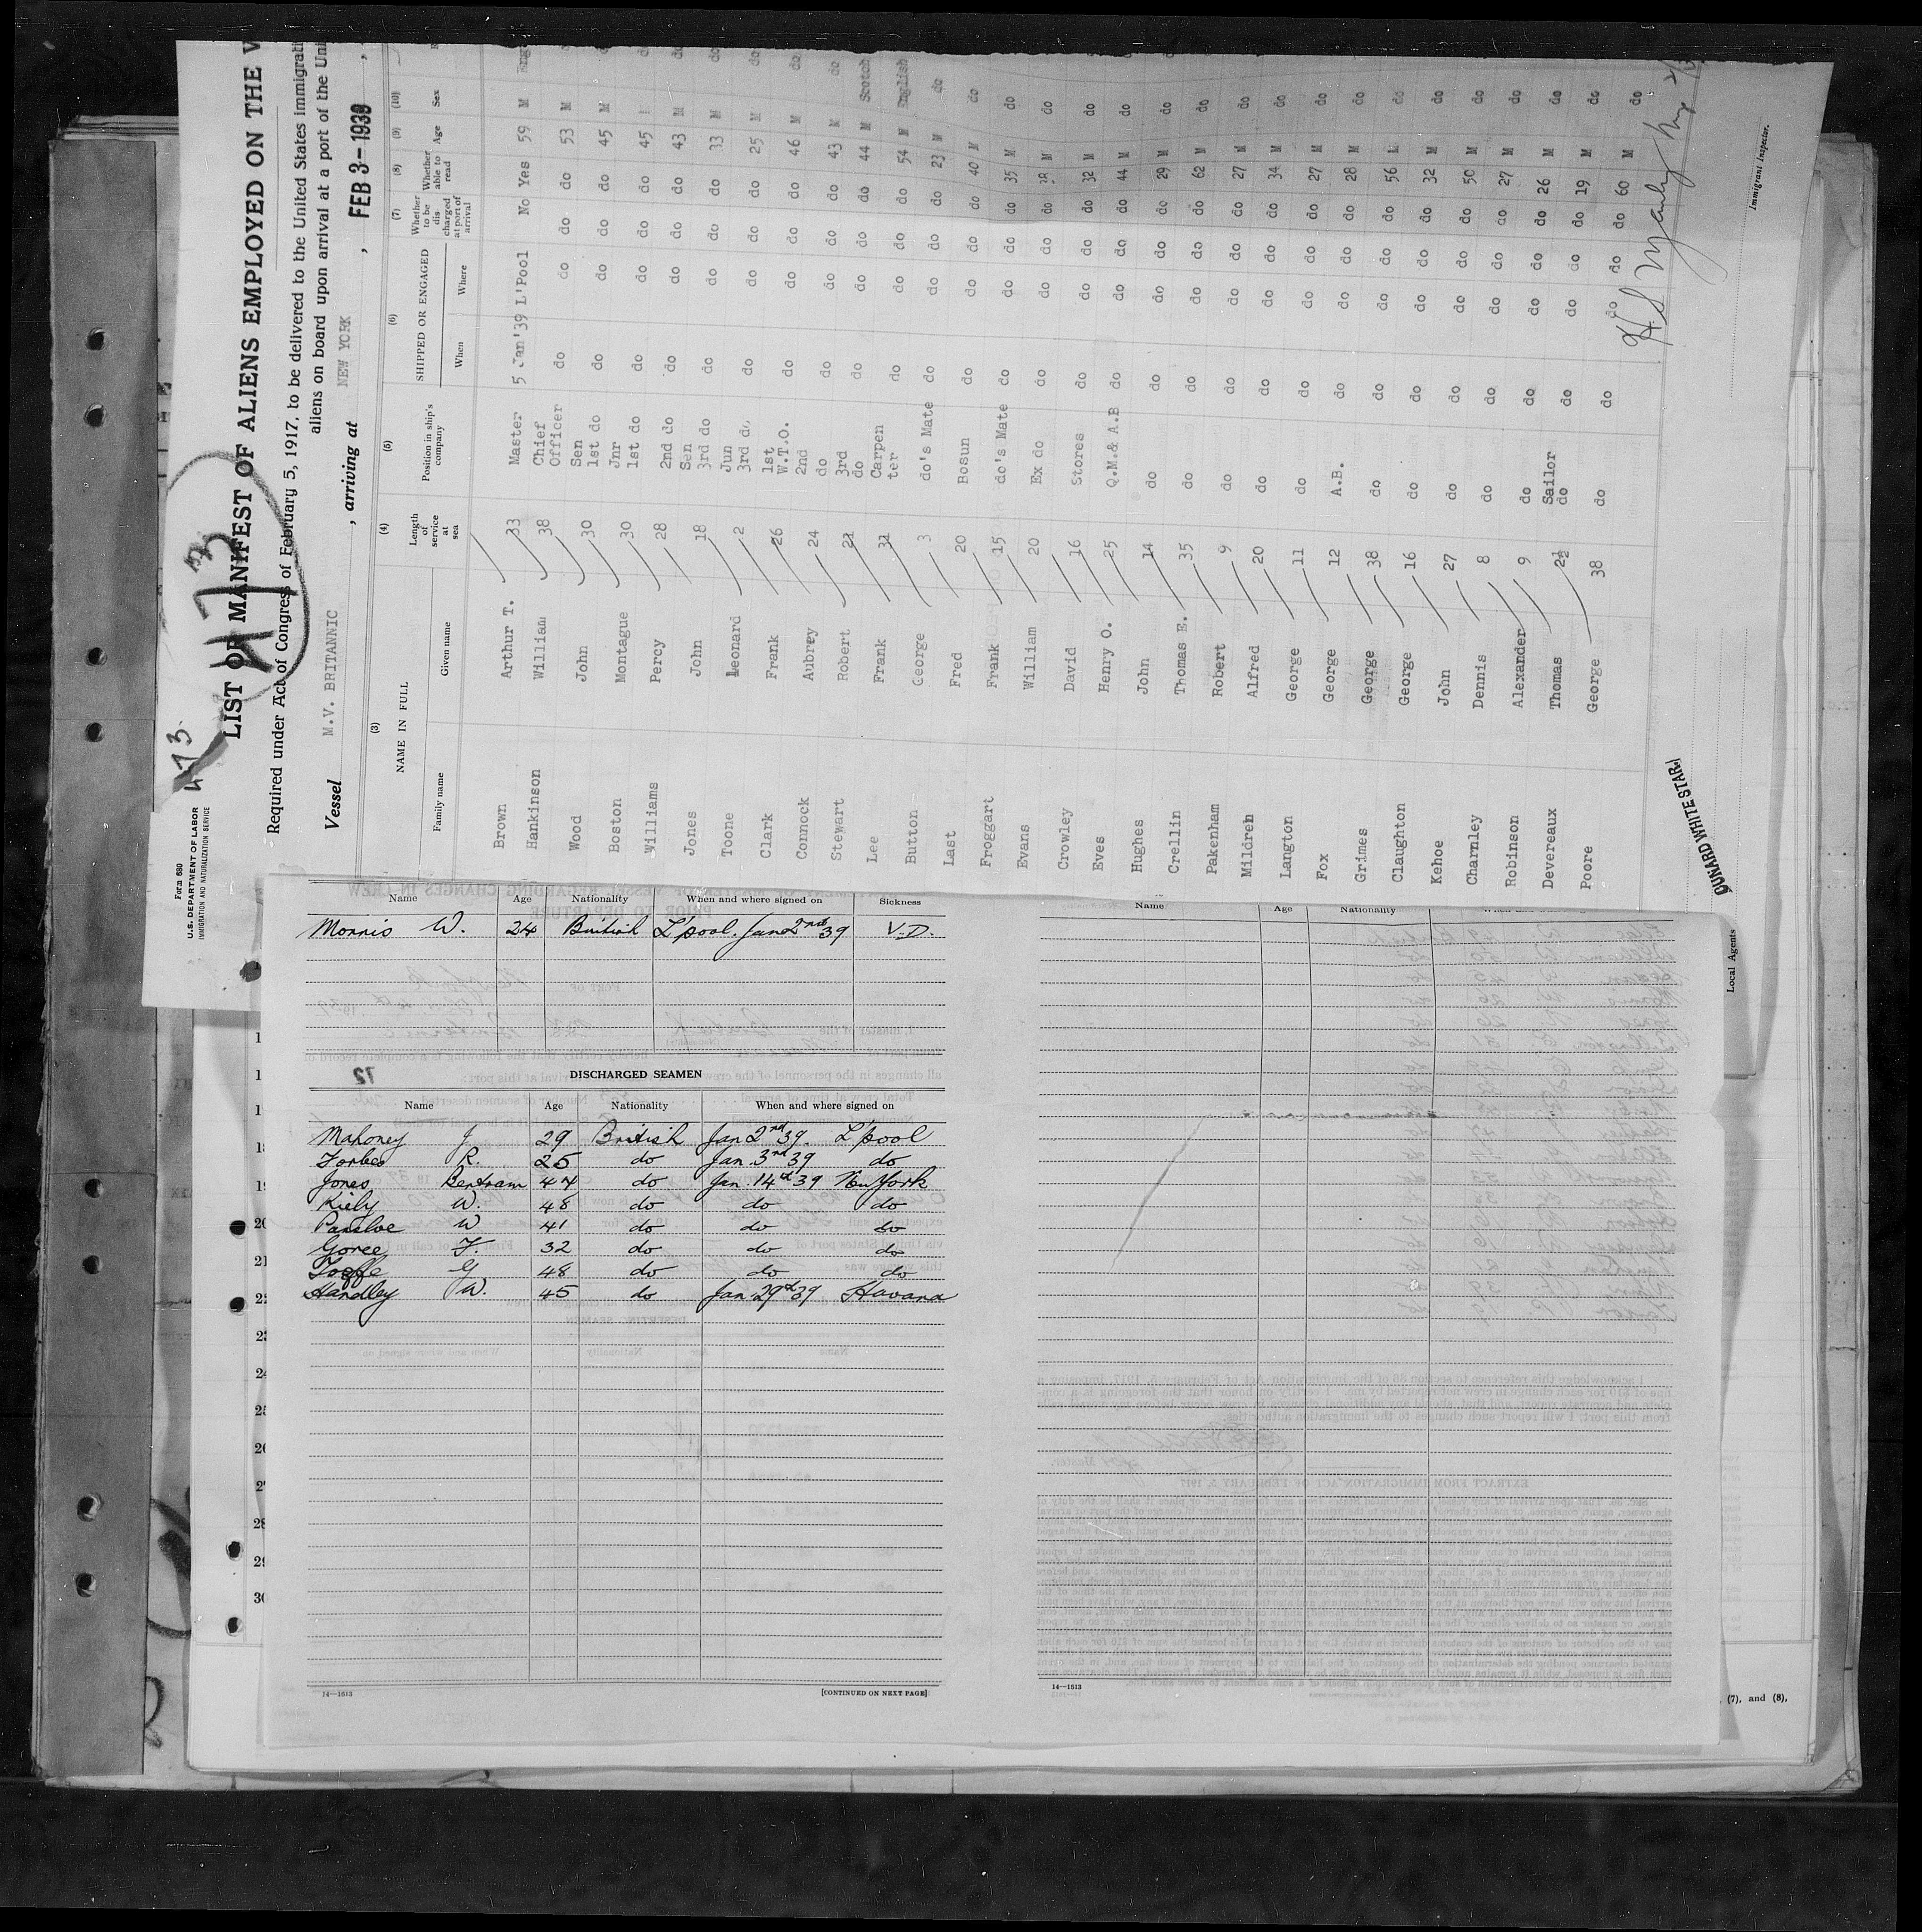 Form 680
U.S. DEPARTMENT OF LABOR
IMMIGRATION AND NATURALIZATION SERVICE
473
473
LIST OR MANIFEST OF ALIENS EMPLOYED ON THE V
Required under Act of Congress of February 5, 1917, to be delivered to the United States immigrati
aliens on board upon arrival at a port of the Uni
Vessel M.V. BRITANNIC , arriving at NEW YORK , FEB 3-1939 ,
(3) (4) (5) (6) (7) (8) (9) (10)
NAME IN FULL Length of service at sea Position in ship's company SHIPPED OR ENGAGED Whether to be discharged at port of arrival Whether able to read Age Sex
Family name Given name When Where
Brown Arthur T. 33 Master 5 Jan '39 L'Pool No Yes 59 M
Hankinson William 38 Chief Officer do do do do 53 M do
Wood John 30 Sen 1st do do do do do 45 M do
Boston Montague 30 Jnr 1st do do do do do 45 do
Williams Percy 28 2nd do do do do do 43 M do
Jones John 18 Sen 3rd do do do do do 33 M do
Toone Leonard 2 Jun 3rd do do do do do 25 M do
Clark Frank 26 1st W.T.O. do do do do 46 M do
Connock Aubrey 24 2nd do do do do do 43 M do
Stewart Robert 21 3rd do do do do do 44 M Scotch
Lee Frank 31 Carpenter do do do do 54 M English
Button George 3 do's Mate do do do do 23 M do
Last Fred 20 Bosun do do do do 40 M do
Froggart Frank 15 do's Mate do do do do 35 M do
Evans William 20 Ex do do do do do M do
Crowley David 16 Stores do do do do 32 M do
Eves Henry O. 25 Q.M.& A.B do do do do 44 M do
Hughes John 14 do do do do do 29 M do
Crellin Thomas E. 35 do do do do do 62 M do
Pakenham Robert 9 do do do do do 27 M do
Mildreh Alfred 20 do do do do do 34 M do
Langton George 11 do do do do do 27 M do
Fox George 12 A.B. do do do do 28 M do
Grimes George 38 do do do do do 56 do
Claughton George 16 do do do do do 32 M do
Kehoe John 27 do do do do do 50 M do
Charnley Dennis 8 do do do do do 27 M do
Robinson Alexander 9 do do do do do 26 M do
Devereaux Thomas 2½ Sailor do do do do do 19 M do
Poore George 38 do do do do do 60 M do
Immigrant Inspector.
CUNARD WHITE STAR
Local Agents
Name Age Nationality When and where signed on Sickness
Morris W. 24 British L'pool. Jan 2nd 39 V.D.
DISCHARGED SEAMEN
Name Age Nationality When and where signed on
Mahoney J 29 British Jan 2nd 39. L'pool
Forbes R. 25 do Jan. 3rd 39 do
Jones Bertram 44 do Jan. 14th 39 New York
Kiely W. 48 do do do
Parsloe W 41 do do do
Goree F. 32 do do do
G 48 do do do
Handley W. 45 do Jan. 29th 39 Havana
14—1613 [CONTINUED ON NEXT PAGE]
Name Age Nationality
14—1613
20
21
24
25
30
(7), and (8),